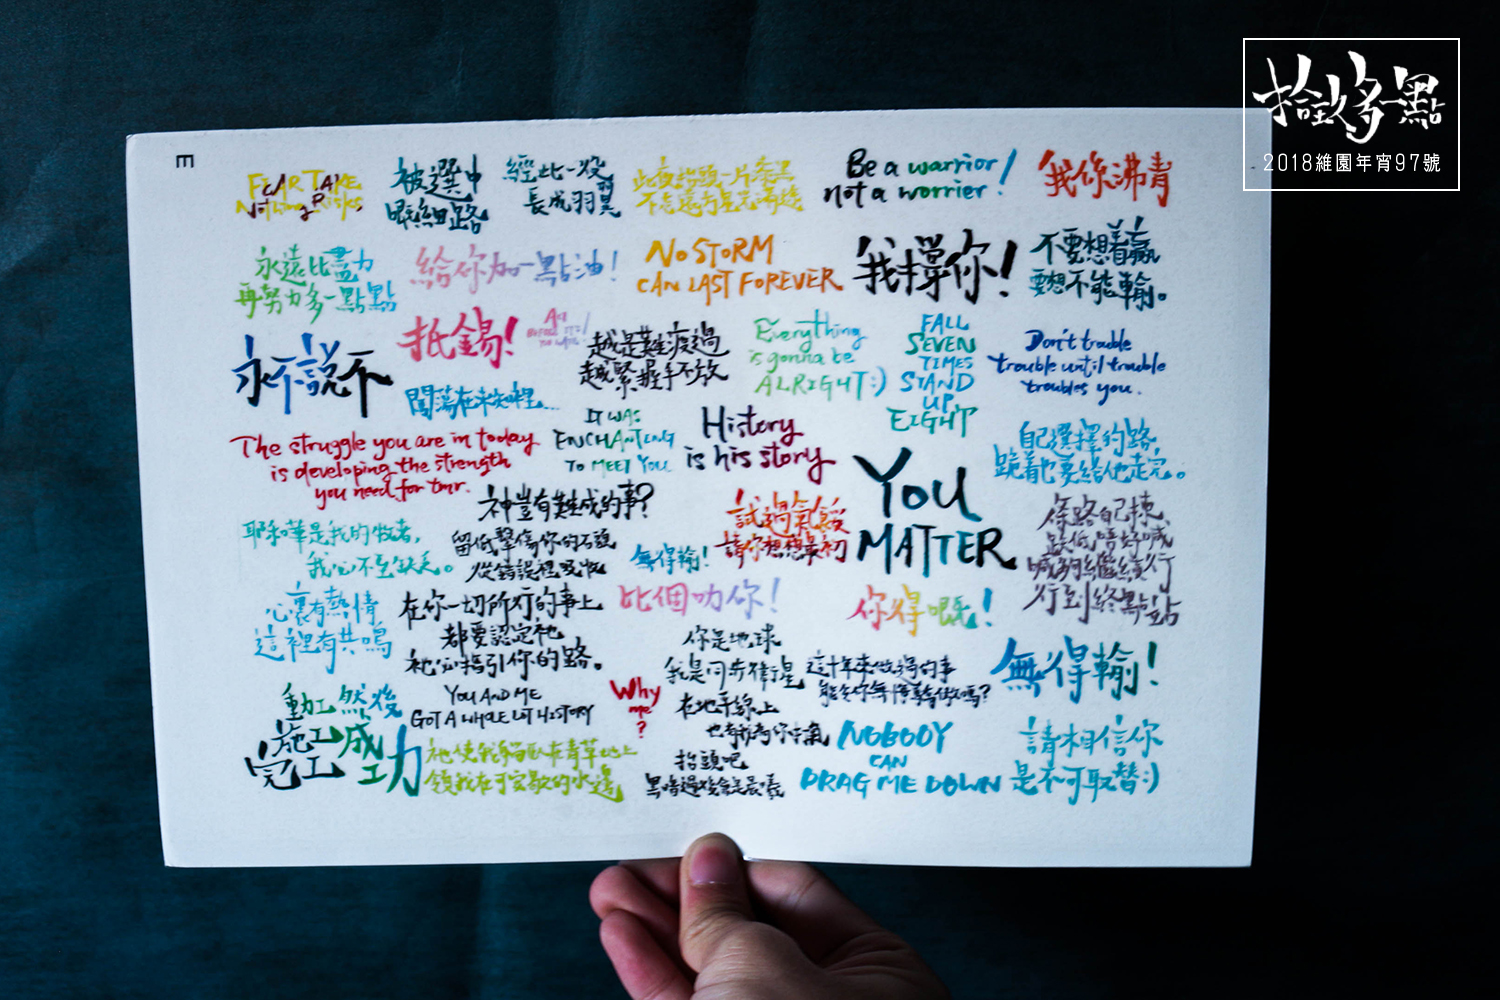 2018維園年宵97號
E
FEAR TAKE
Nothing Risks
被選中
眼紐路
經此一役
長成羽翼
此夜抬頭一片漆黑
Be a warrior
not a worrier!
我係沸青
永遠比盡力
再努力多一點點
給你加一點油!
NO STORM
CAN LAST FOREVER
我撐你!
不要想着贏
要想不能輸。
永不說不
抵錫!
闖蕩在未知裡...
越是難渡過
越緊握手不放
Everything
is gonna be
ALRIGHT:)
FALL
SEVEN
TIMES
STAND
UP,
EIGHT
Don't trouble
trouble until trouble
troubles you.
The struggle you are in today
is developing the strength
you need for tmr.
IT WAS
ENCHANTING
TO MEET YOU
History
is his story
YOU
MATTER
自己選擇的路,
跪着也要給他走完。
神豈有難成的事?
耶和華是我的牧者,
我必不至缺乏。
留低擊傷你的石頭
從錯誤裡吸收
無得輸!
試過氣餒
請你想想最初
條路自己揀,
跌低唔好喊
喊夠繼續行
行到終點站
心裏有熱情
這裡有共鳴
在你一切所行的事上
都要認定祂
祂必指引你的路。
比個叻你!
你得嘅!
你是地球
我是同步衛星
在地平線上
這十年來做過的事
能令你無悔驕傲嗎?
無得輸!
動工然後
施工成
完工功
YOU AND ME
GOT A WHOLE LOT HISTORY
Why
me
?
祂使我躺臥在青草地上
領我在可安歇的水邊
抬頭吧
黑暗過後會是晨曦
NOBODY
CAN
DRAG ME DOWN
請相信你
是不可取替:)